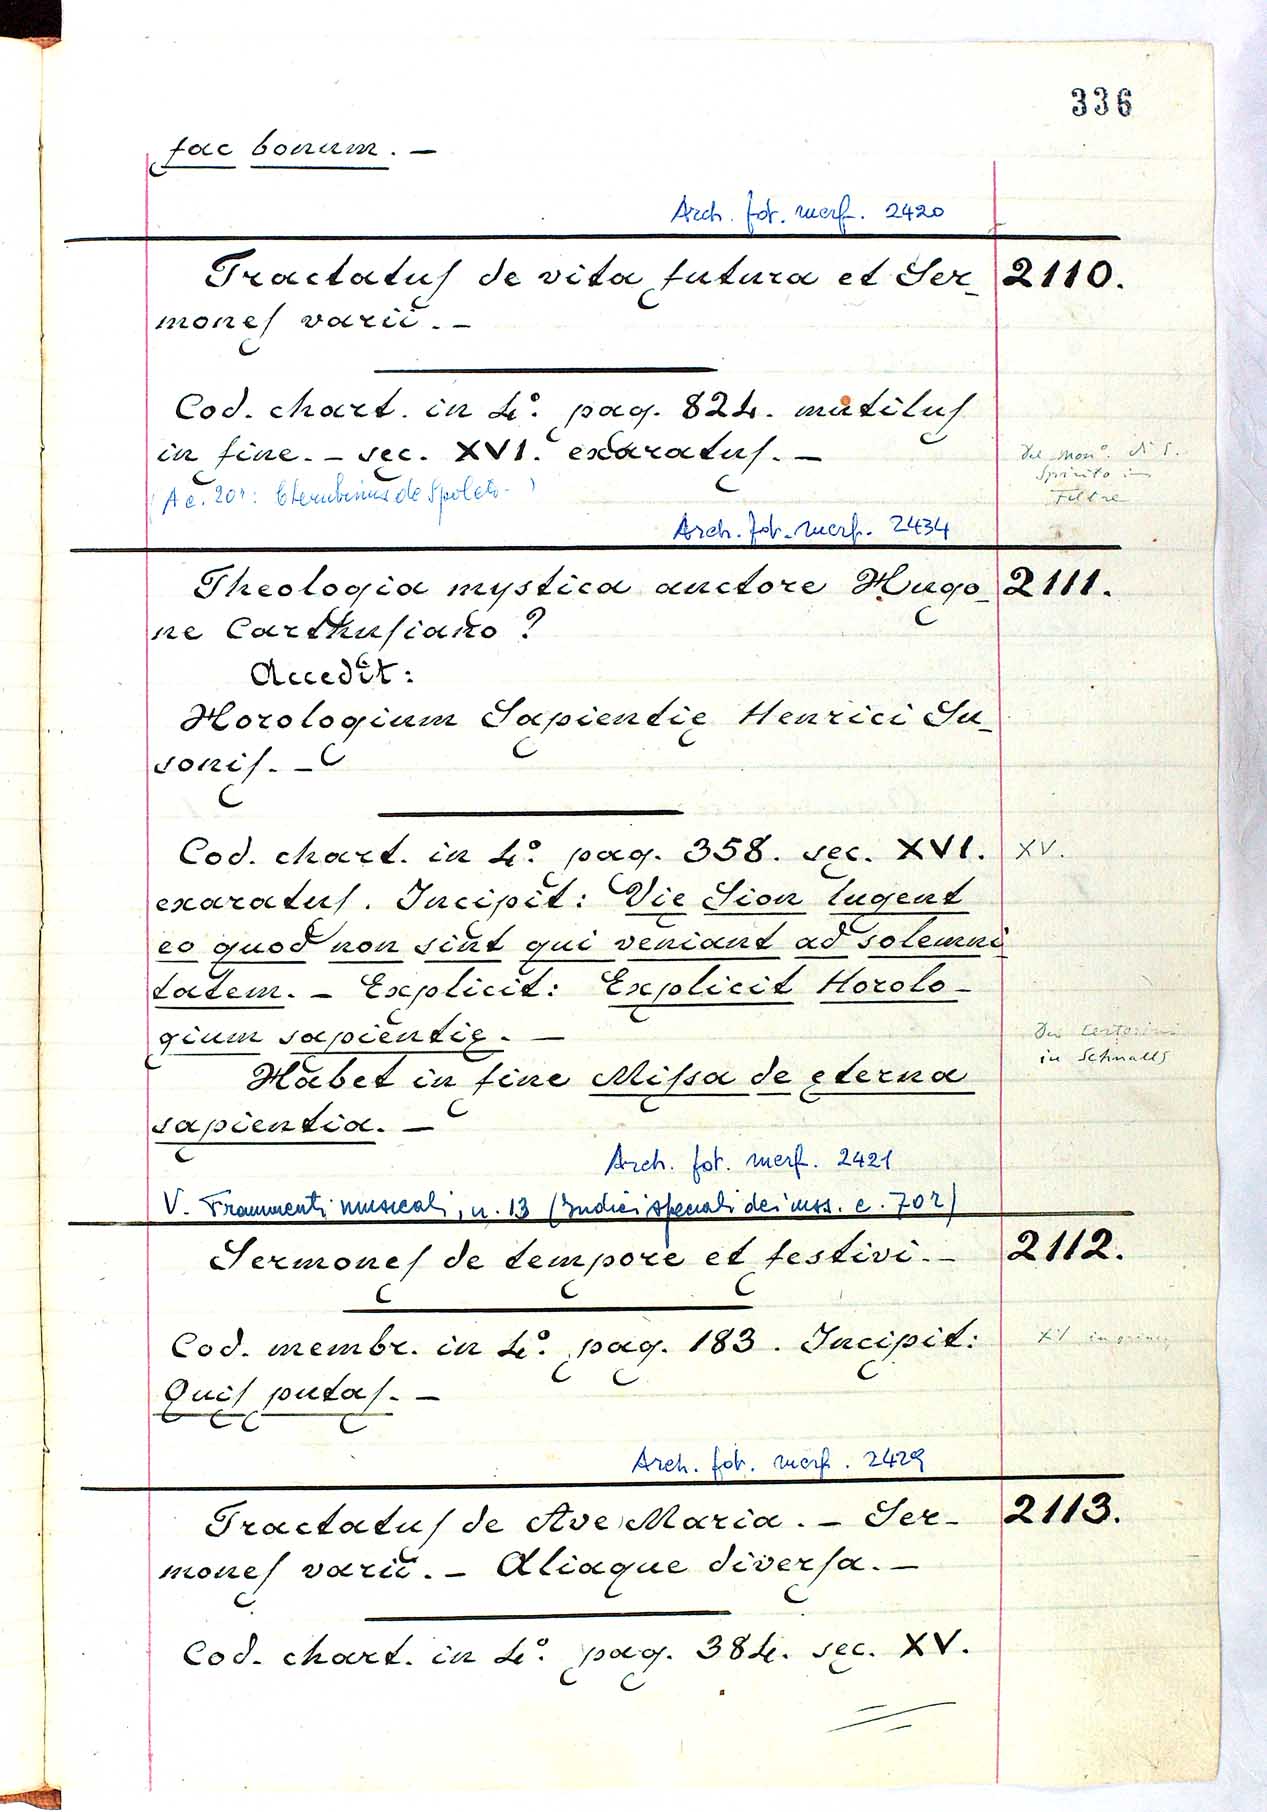 336
fac bonum. —
Arch. fot. merf. 2420
Tractatus de vita futura et Ser- 2110.
mones varii. —
Cod. chart. in 4.° pag. 824. mutilus
in fine. — sec. XVI. exaratus. —
Del mon.° di S.
Spirito in
Feltre
(A c. 20r: Cherubinus de Spoleto. )
Arch. fot. merf. 2434
Theologia mystica auctore Hugo- 2111.
ne Carthusiano?
Accedit:
Horologium Sapientię Henrici Su-
sonis. —
Cod. chart. in 4.° pag. 358. sec. XVI. XV.
exaratus. Incipit: Vię Sion lugent
eo quod non sint qui veniant ad solemni
tatem. — Explicit: Explicit Horolo-
gium sapientię. —
Dei Certosini
in Schnals
Habet in fine Missa de ęterna
sapientia. —
Arch. fot. merf. 2421
V. Frammenti musicali, n. 13 (Indici speciali dei mss. c. 70r)
Sermones de tempore et festivi. — 2112.
Cod. membr. in 4.° pag. 183. Incipit:
XV
Quis putas. —
Arch. fot. merf. 2429
Tractatus de Ave Maria. — Ser- 2113.
mones varii. — Aliaque diversa. —
Cod. chart. in 4.° pag. 384. sec. XV.